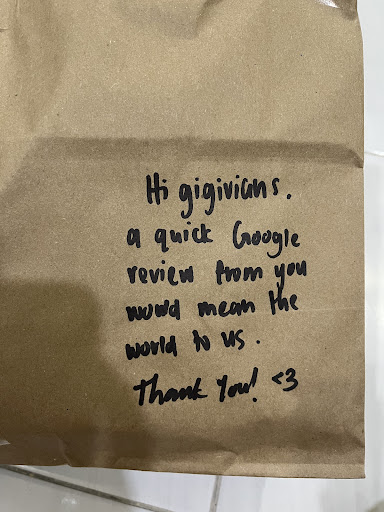 Hi gigivians,
a quick Google
review from you
would mean the
world to us.
Thank You! <3